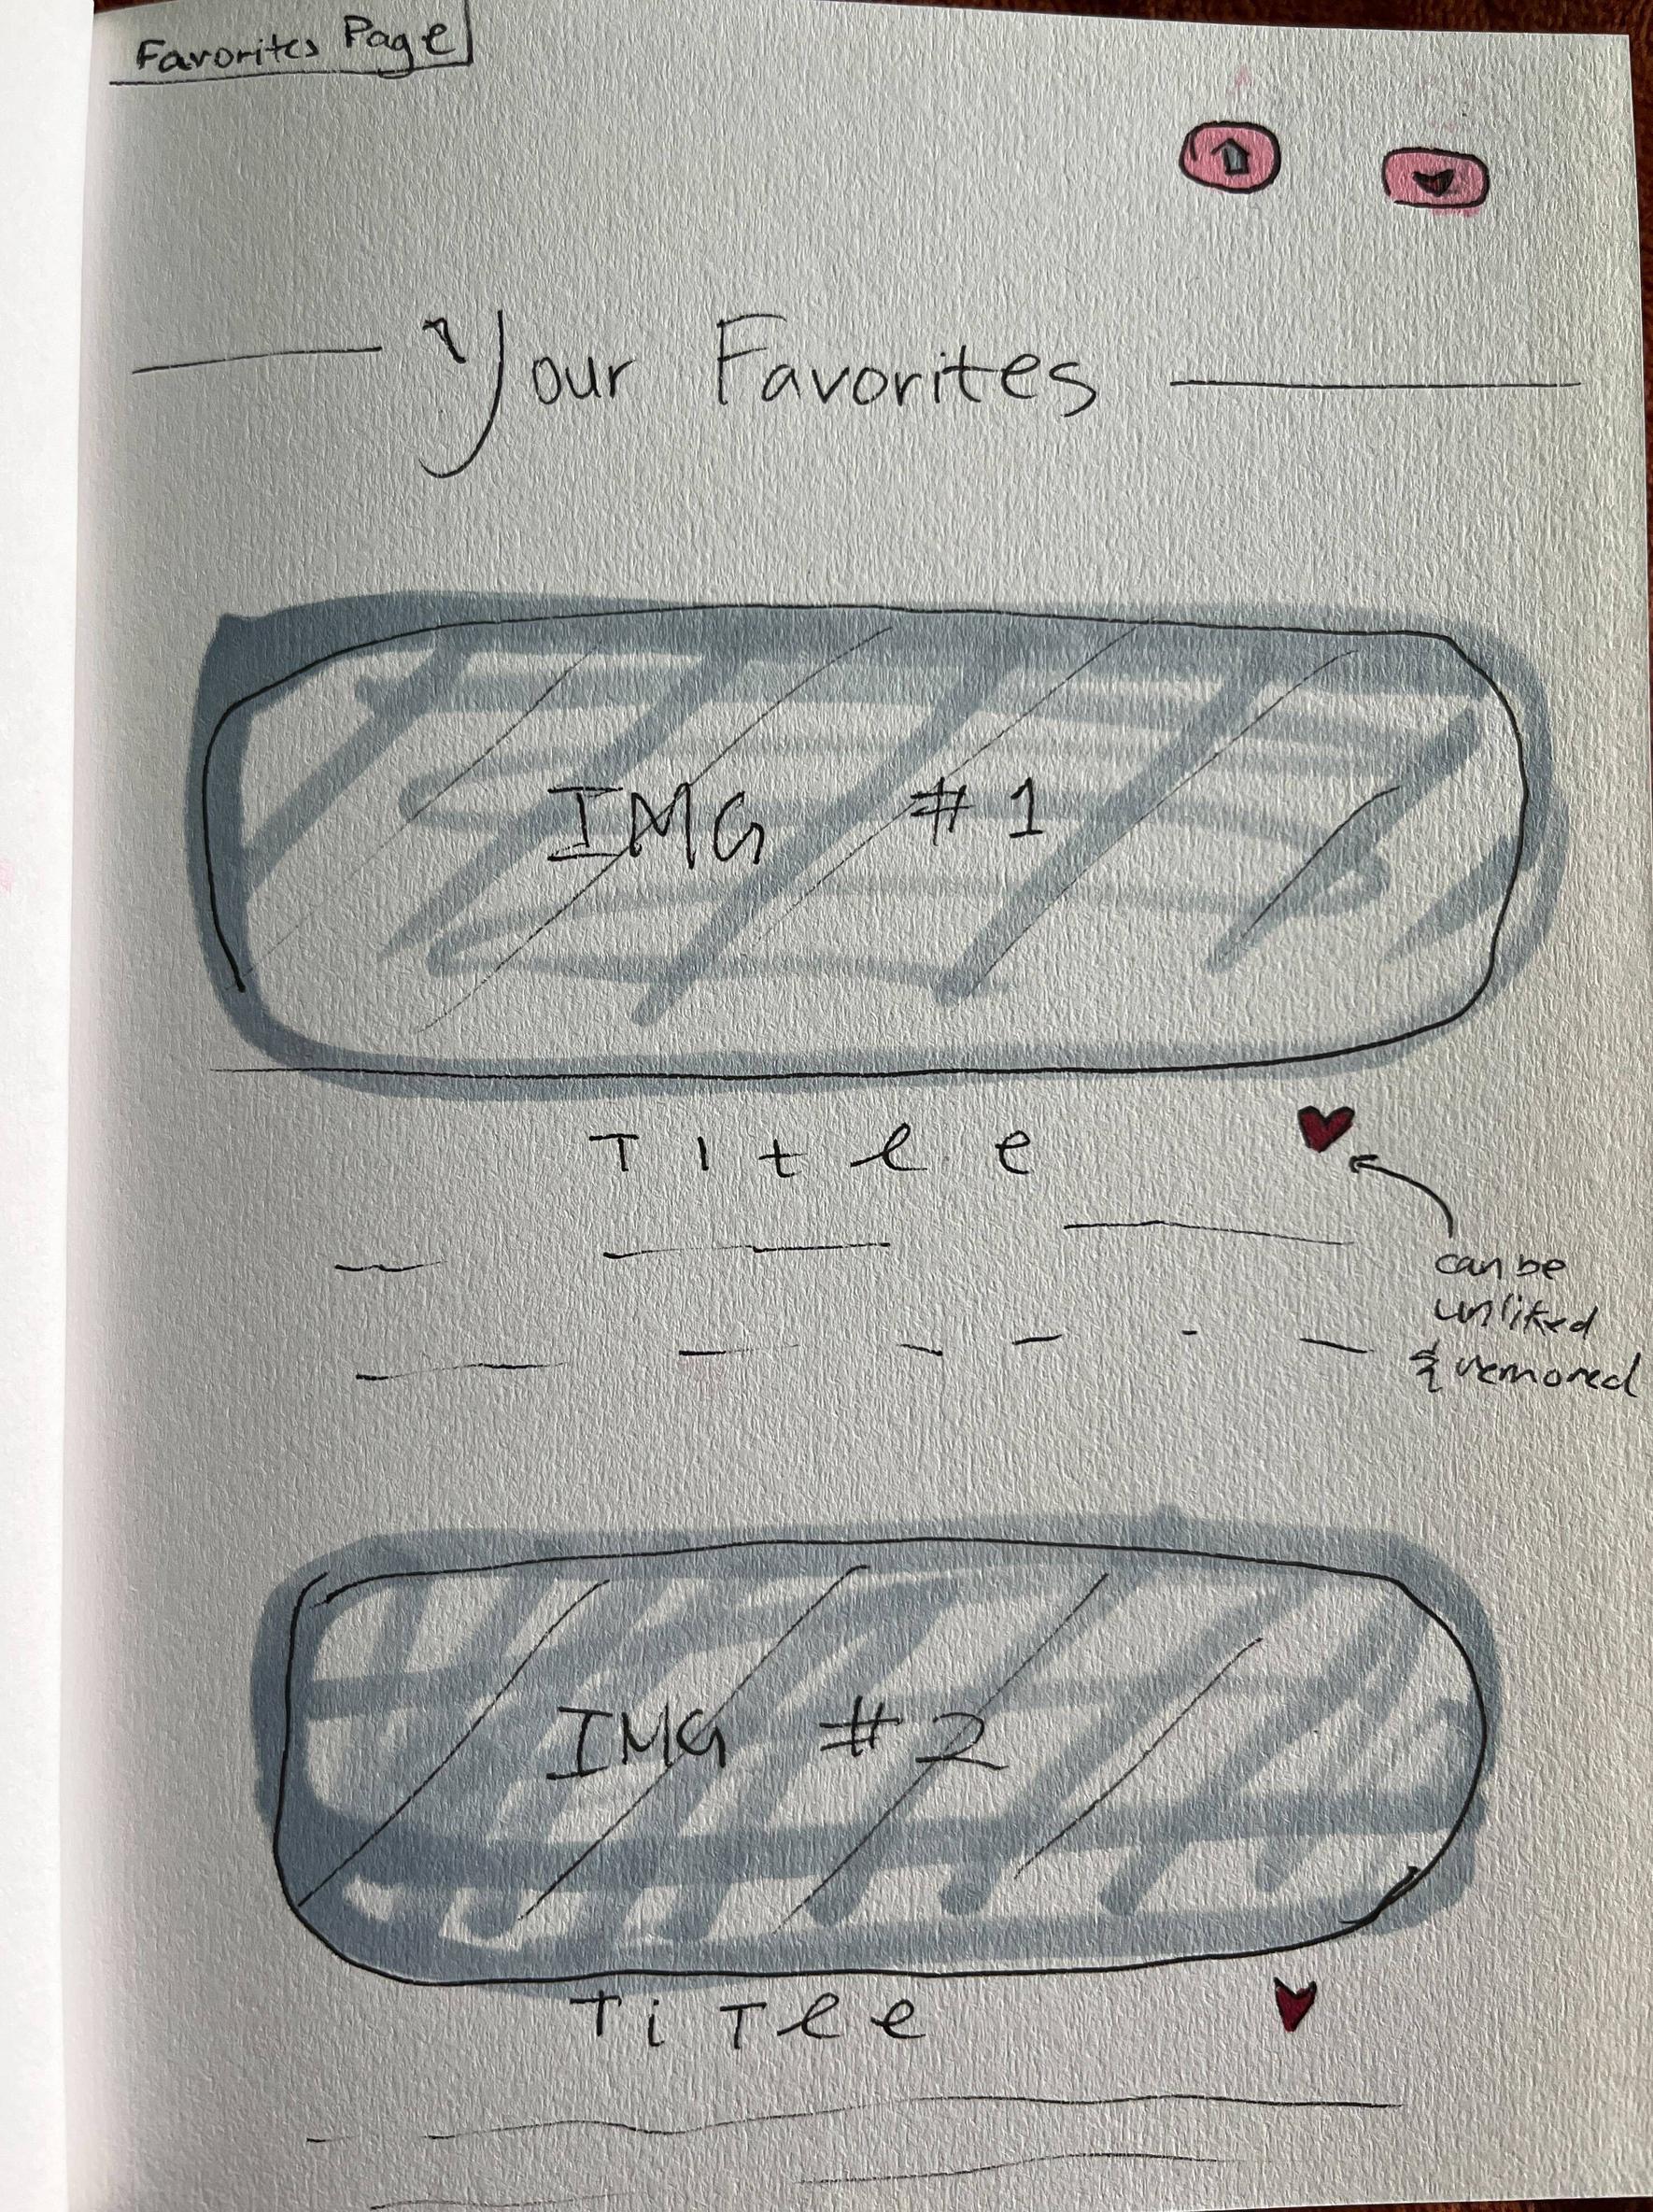 Favorites Page
Your Favorites
IMG #1
Title
can be
unliked
& removed
IMG #2
TiTle